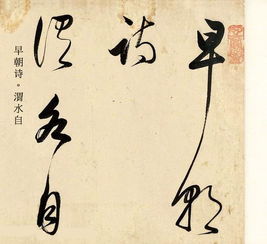 早朝
诗
渭水自
早朝诗·渭水自